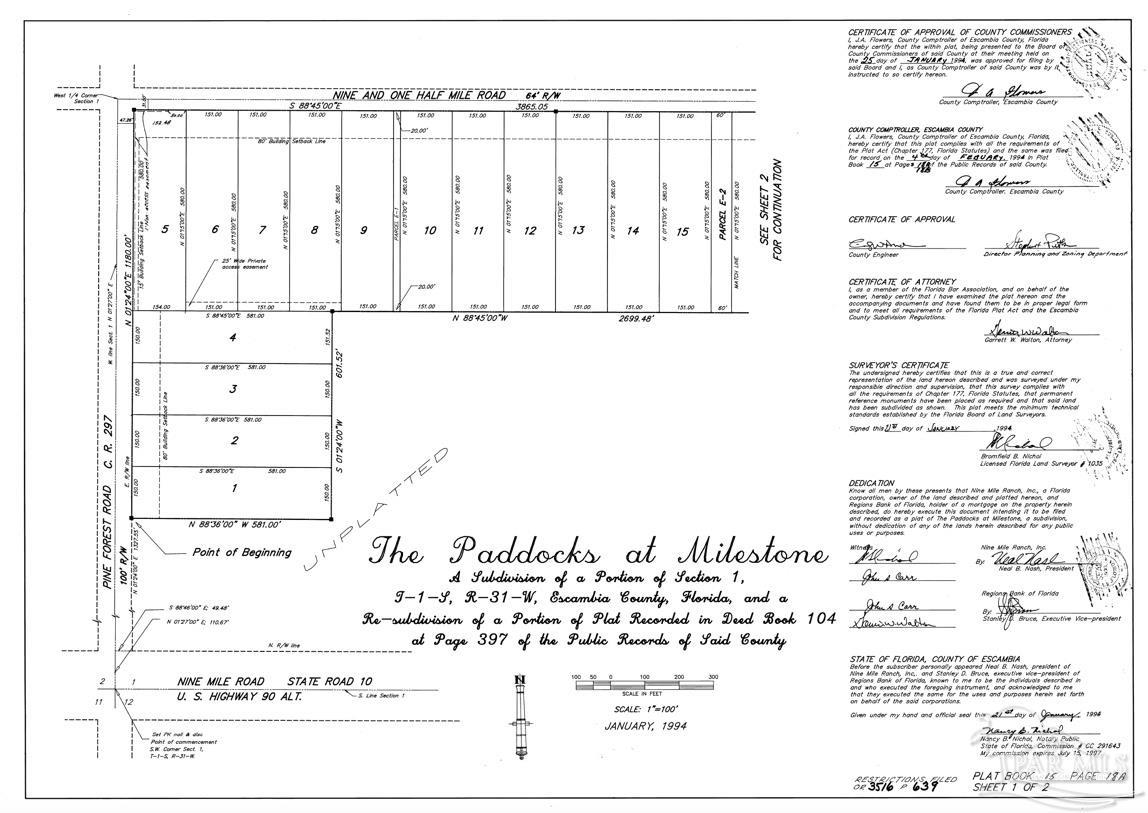 West 1/4 Corner
Section 1
NINE AND ONE HALF MILE ROAD 64' R/W
S 88°45'00"E 3865.05
47.26'
152.48'
151.00 151.00 151.00 151.00 151.00 151.00 151.00 151.00 151.00 151.00 60'
20.00'
80' Building Setback Line
15' Building Setback Line
N 01°15'00"E 580.00
5 6 7 8 9 PARCEL E-1 10 11 12 13 14 15 PARCEL E-2
MATCH LINE
SEE SHEET 2
FOR CONTINUATION
25' Wide Private
access easement
20.00'
154.00 151.00 151.00 151.00 151.00 151.00 151.00 151.00 151.00 151.00 151.00 60'
N 88°45'00"W 2699.48'
N 01°24'00"E 1180.00'
W. line Sect. 1 N 01°27'00 E
S 88°45'00"E 581.00
150.00
4
151.52
S 88°36'00"E 581.00
150.00
3
150.00
S 88°36'00"E 581.00
150.00
2
150.00
S 88°36'00"E 581.00
150.00
1
150.00
80' Building Setback Line
601.52'
S 01°24'00"W
N 88°36'00" W 581.00'
E. R/W line
PINE FOREST ROAD C. R. 297
100' R/W
N 01°24'00 E 1327.55'
Point of Beginning
UNPLATTED
The Paddocks at Milestone
A Subdivision of a Portion of Section 1,
T-1-S, R-31-W, Escambia County, Florida, and a
Re-subdivision of a Portion of Plat Recorded in Deed Book 104
at Page 397 of the Public Records of Said County
S 88°46'00" E; 49.48'
N 01°27'00 E; 110.67'
N. R/W line
2 1
11 12
NINE MILE ROAD STATE ROAD 10
U. S. HIGHWAY 90 ALT.
S. Line Section 1
Set PK nail & disc
Point of commencement
S.W. Corner Sect. 1,
T-1-S, R-31-W.
N
100 50 0 100 200 300
SCALE IN FEET
SCALE: 1"=100'
JANUARY, 1994
CERTIFICATE OF APPROVAL OF COUNTY COMMISSIONERS
I, J.A. Flowers, County Comptroller of Escambia County, Florida
hereby certify that the within plat, being presented to the Board of
County Commissioners of said County at their meeting held on
the 25 day of JANUARY 1994, was approved for filing by
said Board and I, as County Comptroller of said County was by it
instructed to so certify hereon.
County Comptroller, Escambia County
COUNTY COMPTROLLER, ESCAMBIA COUNTY
I, J.A. Flowers, County Comptroller of Escambia County, Florida,
hereby certify that this plat complies with all the requirements of
the Plat Act (Chapter 177, Florida Statutes) and the same was filed
for record on the 4th day of FEBUARY, 1994 in Plat
Book 15 at Pages 18A of the Public Records of said County.
18B
County Comptroller, Escambia County
CERTIFICATE OF APPROVAL
County Engineer
Director Planning and Zoning Department
CERTIFICATE OF ATTORNEY
I, as a member of the Florida Bar Association, and on behalf of the
owner, hereby certify that I have examined the plat hereon and the
accompanying documents and have found them to be in proper legal form
and to meet all requirements of the Florida Plat Act and the Escambia
County Subdivision Regulations.
Garrett W. Walton, Attorney
SURVEYOR'S CERTIFICATE
The undersigned hereby certifies that this is a true and correct
representation of the land hereon described and was surveyed under my
responsible direction and supervision, that this survey complies with
all the requirements of Chapter 177, Florida Statutes, that permanent
reference monuments have been placed as required and that said land
has been subdivided as shown. This plat meets the minimum technical
standards established by the Florida Board of Land Surveyors.
Signed this 21st day of JANUARY, 1994
Bromfield B. Nichol
Licensed Florida Land Surveyor # 1035
DEDICATION
Know all men by these presents that Nine Mile Ranch, Inc., a Florida
corporation, owner of the land described and platted hereon, and
Regions Bank of Florida, holder of mortgage on the property herein
described, do hereby execute this document intending it to be filed
and recorded as a plat of The Paddocks at Milestone, a subdivision,
without dedication of any of the lands herein described for any public
uses or purposes.
Witness
John S Carr
John S Carr
Nine Mile Ranch, Inc.
By: Neal Nash
Neal B. Nash, President
Regions Bank of Florida
By:
Stanley D. Bruce, Executive Vice-president
STATE OF FLORIDA, COUNTY OF ESCAMBIA
Before the subscriber personally appeared Neal B. Nash, president of
Nine Mile Ranch, Inc., and Stanley D. Bruce, executive vice-president of
Regions Bank of Florida, known to me to be the individuals described in
and who executed the foregoing instrument, and acknowledged to me
that they executed the same for the uses and purposes herein set forth
on behalf of the said corporations.
Given under my hand and official seal this 21st day of January, 1994
Nancy B. Nichol
Nancy B. Nichol, Notary Public
State of Florida, Commission # CC 291643
My commission expires July 15, 1997
RESTRICTIONS FILED
OR 3516 P 639
PLAT BOOK 15 PAGE 18A
SHEET 1 OF 2
PAR MLS